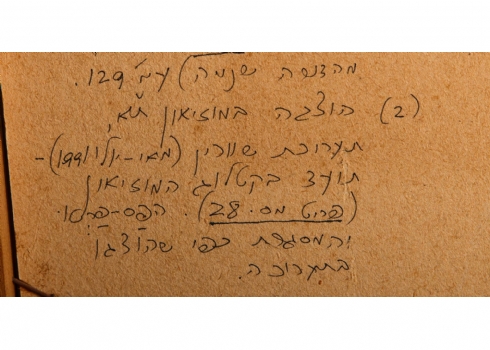 מהדנסה שנמה) עמ' 129.
(2) הוצגה במוזיאון ת"א,
תערוכת שוורין (מאי-יולי 1991)-
תועד בקטלוג המוזיאון
(פריט מס. 28). הפס-פרטו
והמסגרת כפי שהוצגו
בתערוכה.